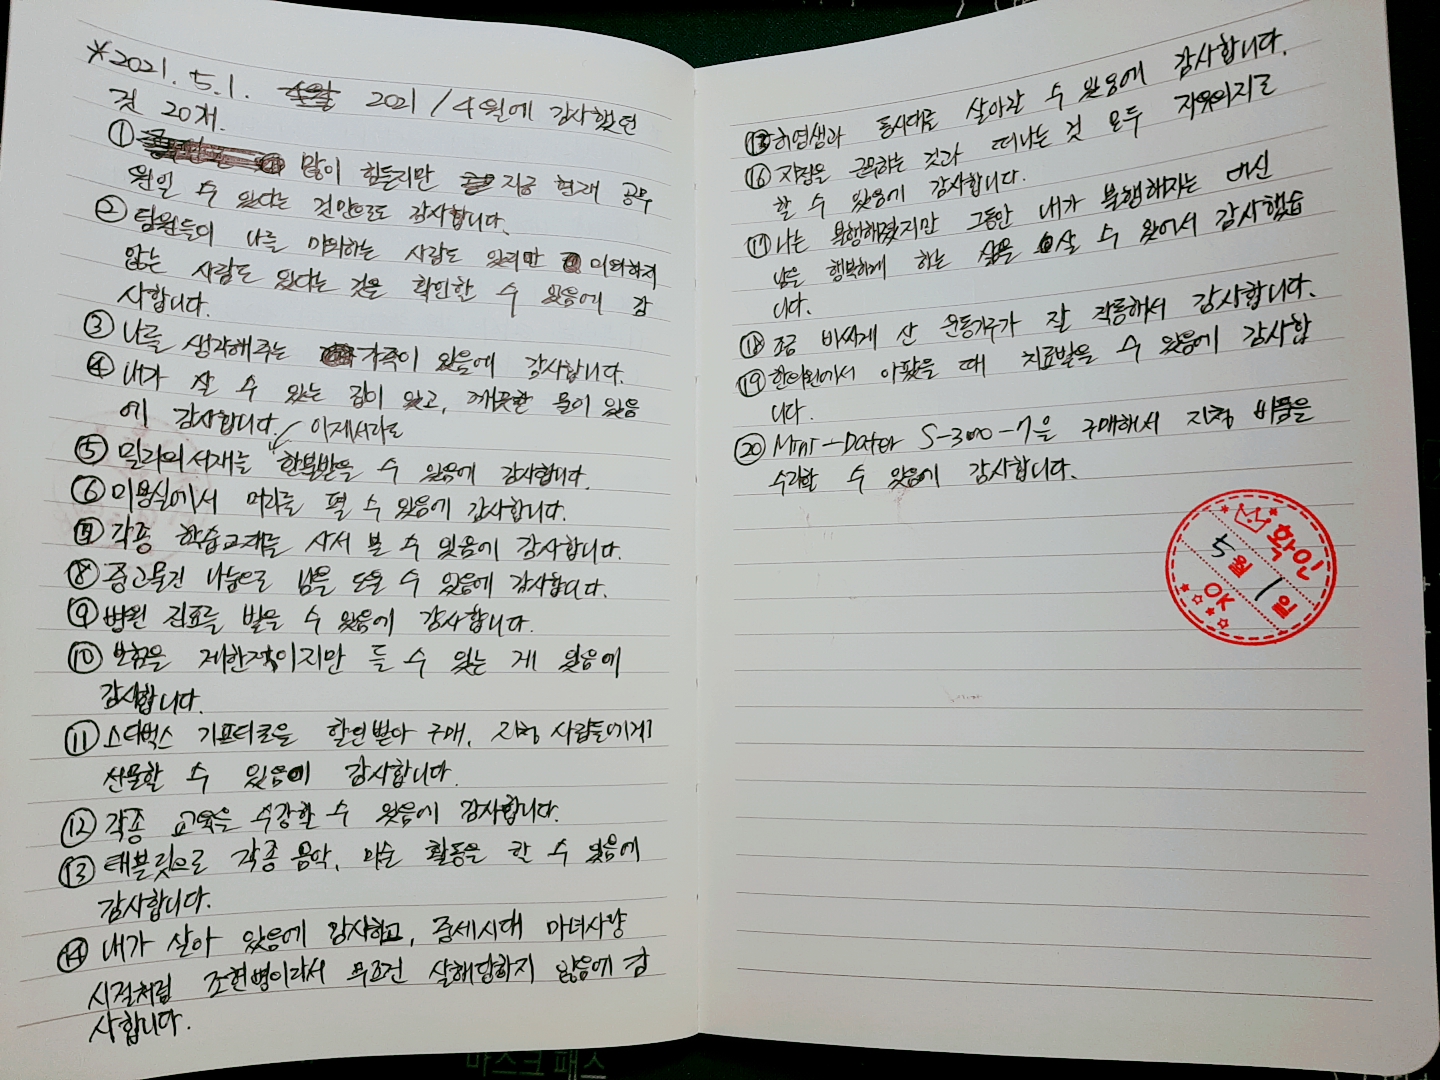 *2021. 5.1. 2021/4월에 감사했던
것 20개.
① 많이 힘들지만 지금 현재 공무
원일 수 있다는 것만으로도 감사합니다.
② 팀원들이 나를 미워하는 사람도 있지만 미워하지
않는 사람도 있다는 것을 확인할 수 있음에 감
사합니다.
③ 나를 생각해주는 가족이 있음에 감사합니다.
④ 내가 살 수 있는 집이 있고, 깨끗한 물이 있음
에 감사합니다.
이제서라도
⑤ 밀리의서재를 환불받을 수 있음에 감사합니다.
⑥ 미용실에서 머리를 펼 수 있음에 감사합니다.
⑦ 각종 학습교재를 사서 볼 수 있음에 감사합니다.
⑧ 중고물건 나눔으로 남을 도울 수 있음에 감사합니다.
⑨ 병원 진료를 받을 수 있음에 감사합니다.
⑩ 보험을 제한적이지만 들 수 있는 게 있음에
감사합니다.
⑪ 스타벅스 기프티콘을 할인받아 구매, 지청 사람들에게
선물할 수 있음에 감사합니다.
⑫ 각종 교육을 수강할 수 있음에 감사합니다.
⑬ 태블릿으로 각종 음악, 미술 활동을 할 수 있음에
감사합니다.
⑭ 내가 살아 있음에 감사하고, 중세시대 마녀사냥
시절처럼 조현병이라서 무조건 살해당하지 않음에 감
사합니다.
⑮ 허영생과 동시대를 살아갈 수 있음에 감사합니다.
⑯ 직장을 근무하는 것과 떠나는 것 모두 자유의지로
할 수 있음에 감사합니다.
⑰ 나는 불행해졌지만 그동안 내가 불행해지는 대신
남을 행복하게 하는 삶을 살 수 있어서 감사했습
니다.
⑱ 조금 비싸게 산 운동기구가 잘 작동해서 감사합니다.
⑲ 한의원에서 아팠을 때 치료받을 수 있음에 감사합
니다.
⑳ Mini-Dater S-300-7을 구매해서 지청 비품을
수리할 수 있음에 감사합니다.
확인
5월 1일
OK
마스크 패스